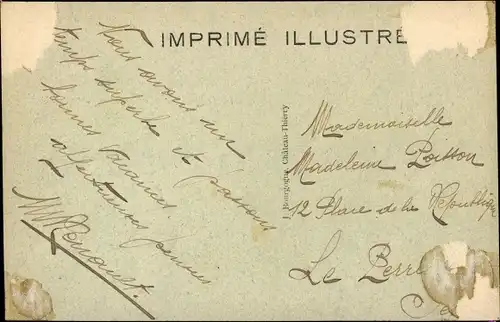 IMPRIMÉ ILLUSTRÉ
Nous avons un
temps superbe et passons
bonnes vacances
affectueuses pensées
J. Bourgogne, Château-Thierry
Mademoiselle
Madeleine Poisson
12 Place de la République
Le Perre